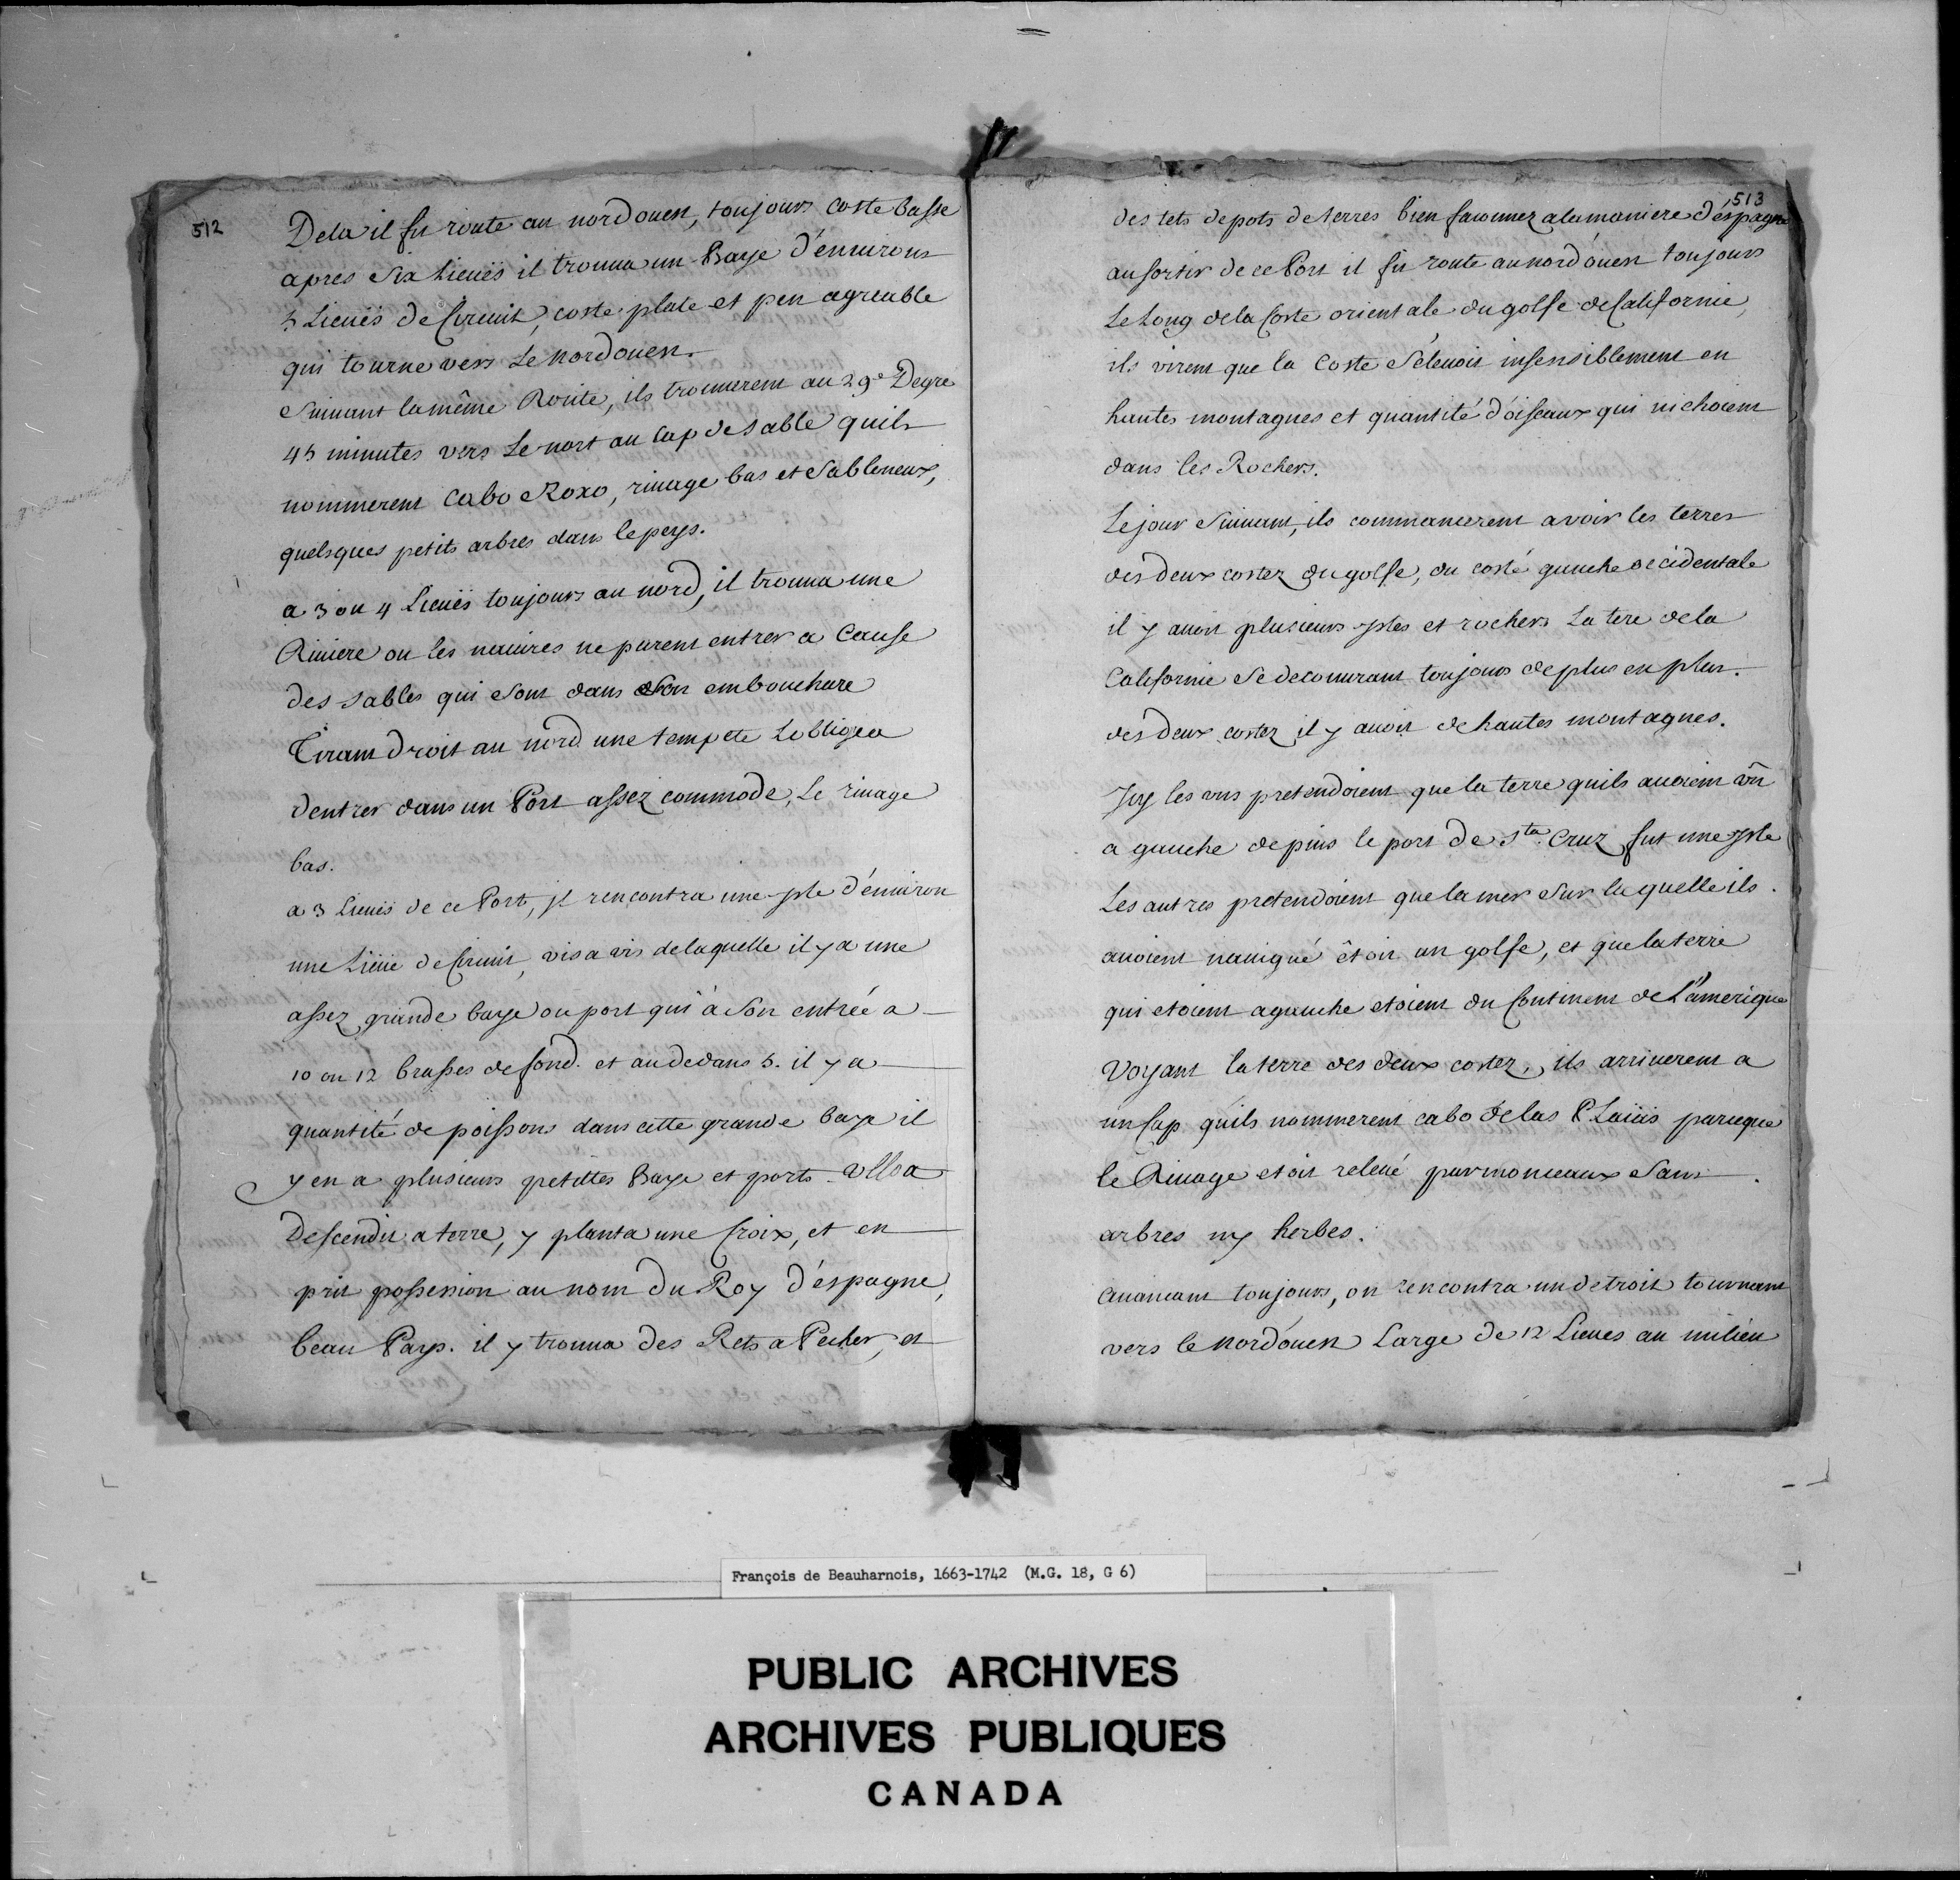 512
Dela il fit route au nordouest, toujours coste basse
apres Six Lieuës il trouua un Baye d'enuirons
5 Lieuës de Circuit, coste plate et peu agreable
qui tourne vers Le nordouest.
Suiuant la même Route, ils trouuerent au 29e Degre
45 minutes vers Le nort au Cap de Sable quils
nommerent Cabo Roxo, riuage bas et Sabloneux,
quelsques petits arbres dans le pays.
a 3 ou 4 Lieuës toujours au nord, il trouua une
Riuiere ou les nauires ne purent entrer a Cause
des Sables qui Sont dans Son embouchure
Tirant Droit au nord une tempete Lobligea
dentrer dans un Port assez commode, Le riuage
bas.
a 3 Lieuës de ce Port, jl rencontra une jsle d'enuiron
une Lieüe de Circuit, vis a vis de laquelle il y a une
assez grande baye ou port qui à Son entrée a
10 ou 12 brasses de fond. et au dedans 5. il y a
quantité de poissons dans cette grande baye il
y en a plusieurs petittes Baye et ports Ulloa
Descendit a terre, y planta une Croix, et en
prit possession au nom du Roy d'espagne,
beau Pays. il y trouua des Rets a Pecher, et
513
des tets de pots de terres bien faconnez a la maniere d'espagne
au sortir de ce Port il fit route au nord'ouest toujours
Le Long de la Coste orientale du golfe de Californie,
ils virent que la Coste S'éleuoit insensiblement en
hautes montagnes et quantité d'oiseaux qui nichoient
dans les Rochers.
Le jour Suiuant, ils commancerent a voir les terres
des deux costez du golfe, du costé gauche occidentale
il y auoit plusieurs jsles et rochers La tere de la
Californie Se decouurant toujours de plus en plus.
des deux costez il y auoit de hautes montagnes.
Jcy les uns pretendoient que la terre quils auoient vû
a gauche depuis le port de Sta. Cruz fut une jsle
Les autres pretendoient que la mer Sur laquelle ils
auoient nauigué êtoit un golfe, et que la terre
qui etoient a gauche etoient du Continent de L'amerique
Voyant la terre des deux costez, ils arriuerent a
un Cap quils nommerent cabo de las PLaiüs parceque
le Riuage etoit releué par monceaux Sans
arbres ny herbes.
Auancant toujours, on rencontra un detroit tournant
vers le nord'ouest Large de 12 Lieues au milieu
François de Beauharnois, 1663-1742 (M.G. 18, G 6)
PUBLIC ARCHIVES
ARCHIVES PUBLIQUES
CANADA